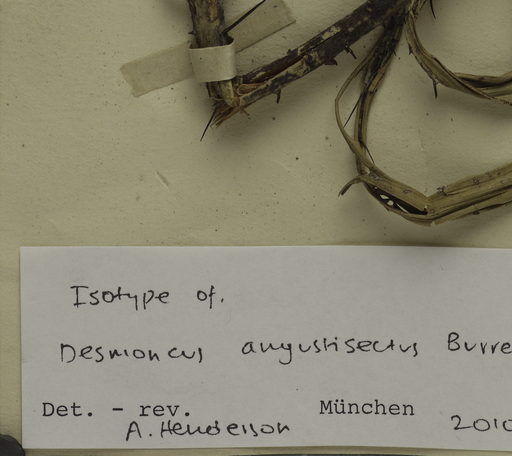 Isotype of.
Desmoncus angustisectus Burre
Det. - rev. München
A. Henderson 2010